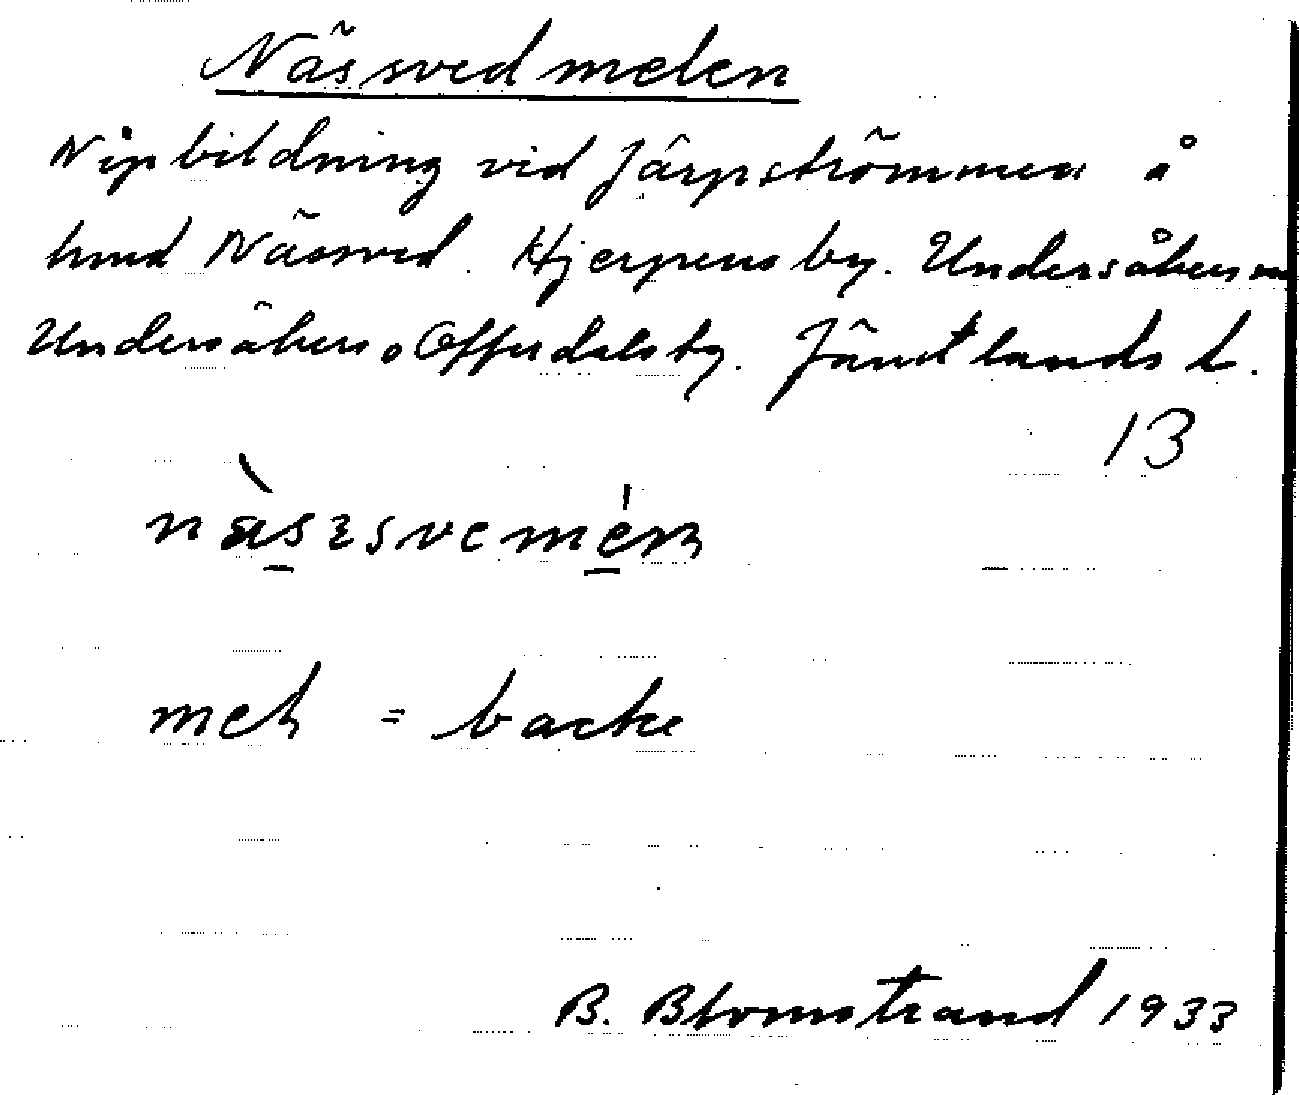 Näsvedmelen
Nipbildning vid Järpströmmen å
hmd Näsved. Hjerpens by. Undersåkers sn
Undersåkers o Offerdals tg. Jämtlands l.
13
mel = backe
B. Blomstrand 1933